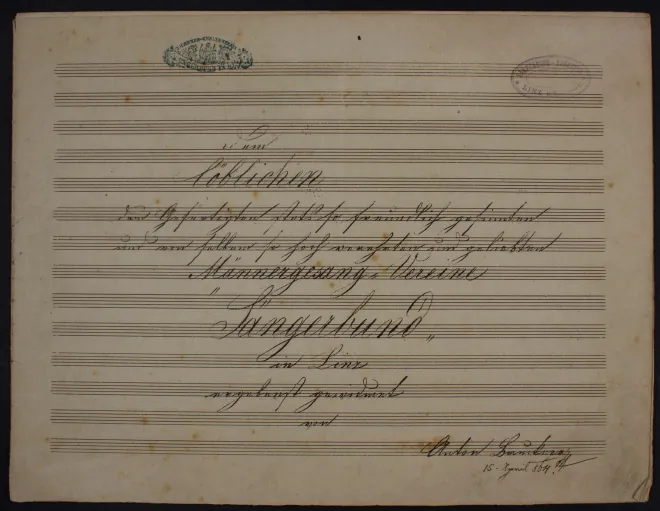 Dem
löblichen
dem Gefertigten stets so freundlich gesinnten
und von selben so hoch verehrten und geliebten
Männergesang-Vereine
„Sängerbund“
in Linz
ergebenst gewidmet
von
Anton Bruckner
15. April